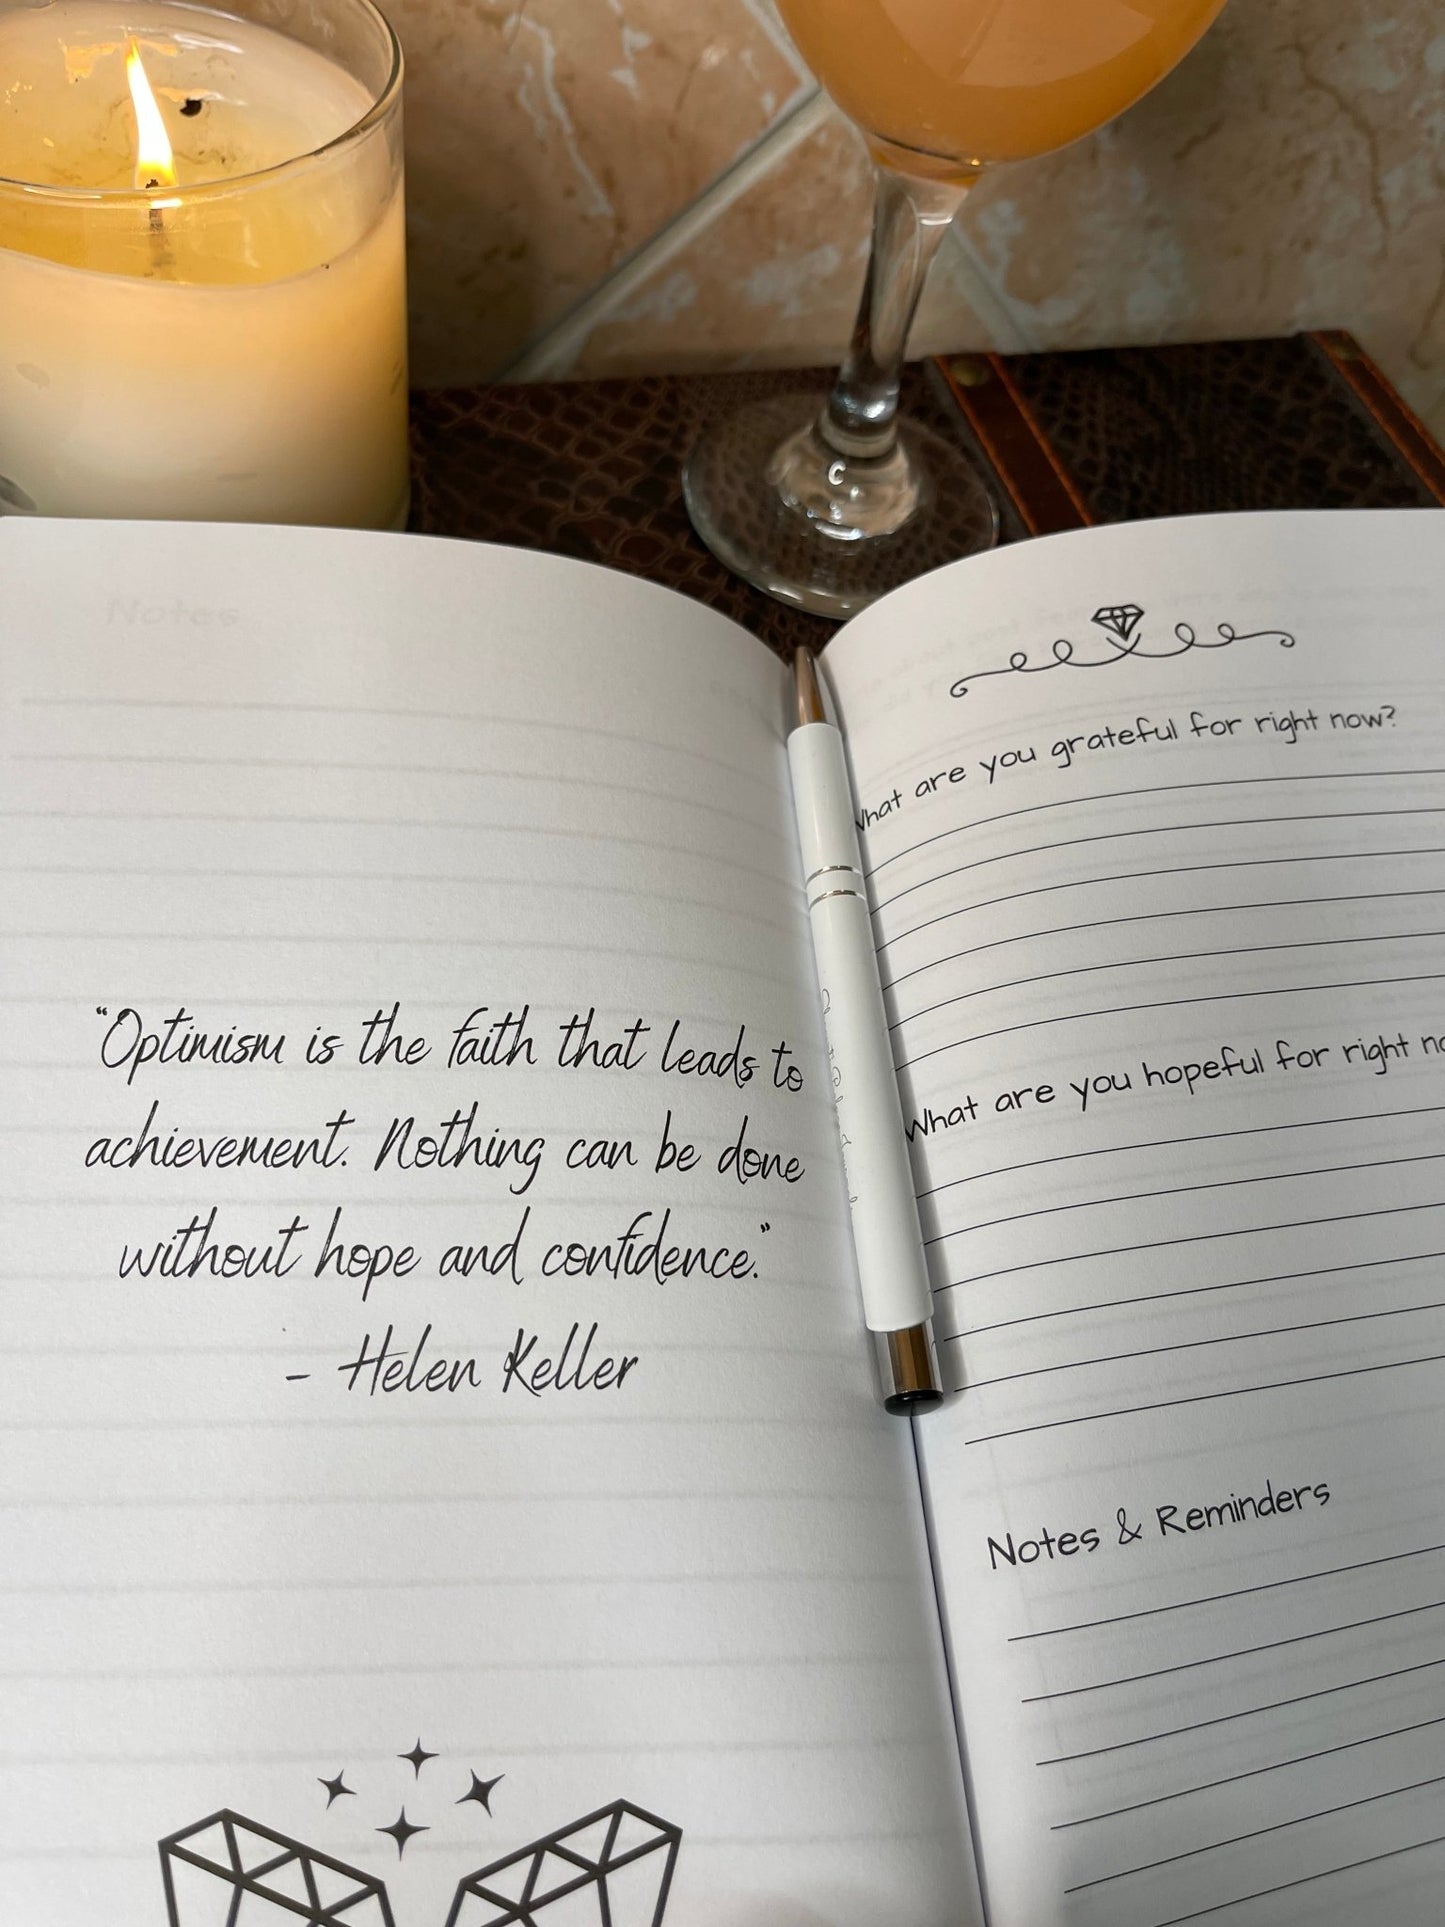 Notes
"Optimism is the faith that leads to
achievement. Nothing can be done
without hope and confidence."
- Helen Keller
What are you grateful for right now?
What are you hopeful for right
Notes & Reminders